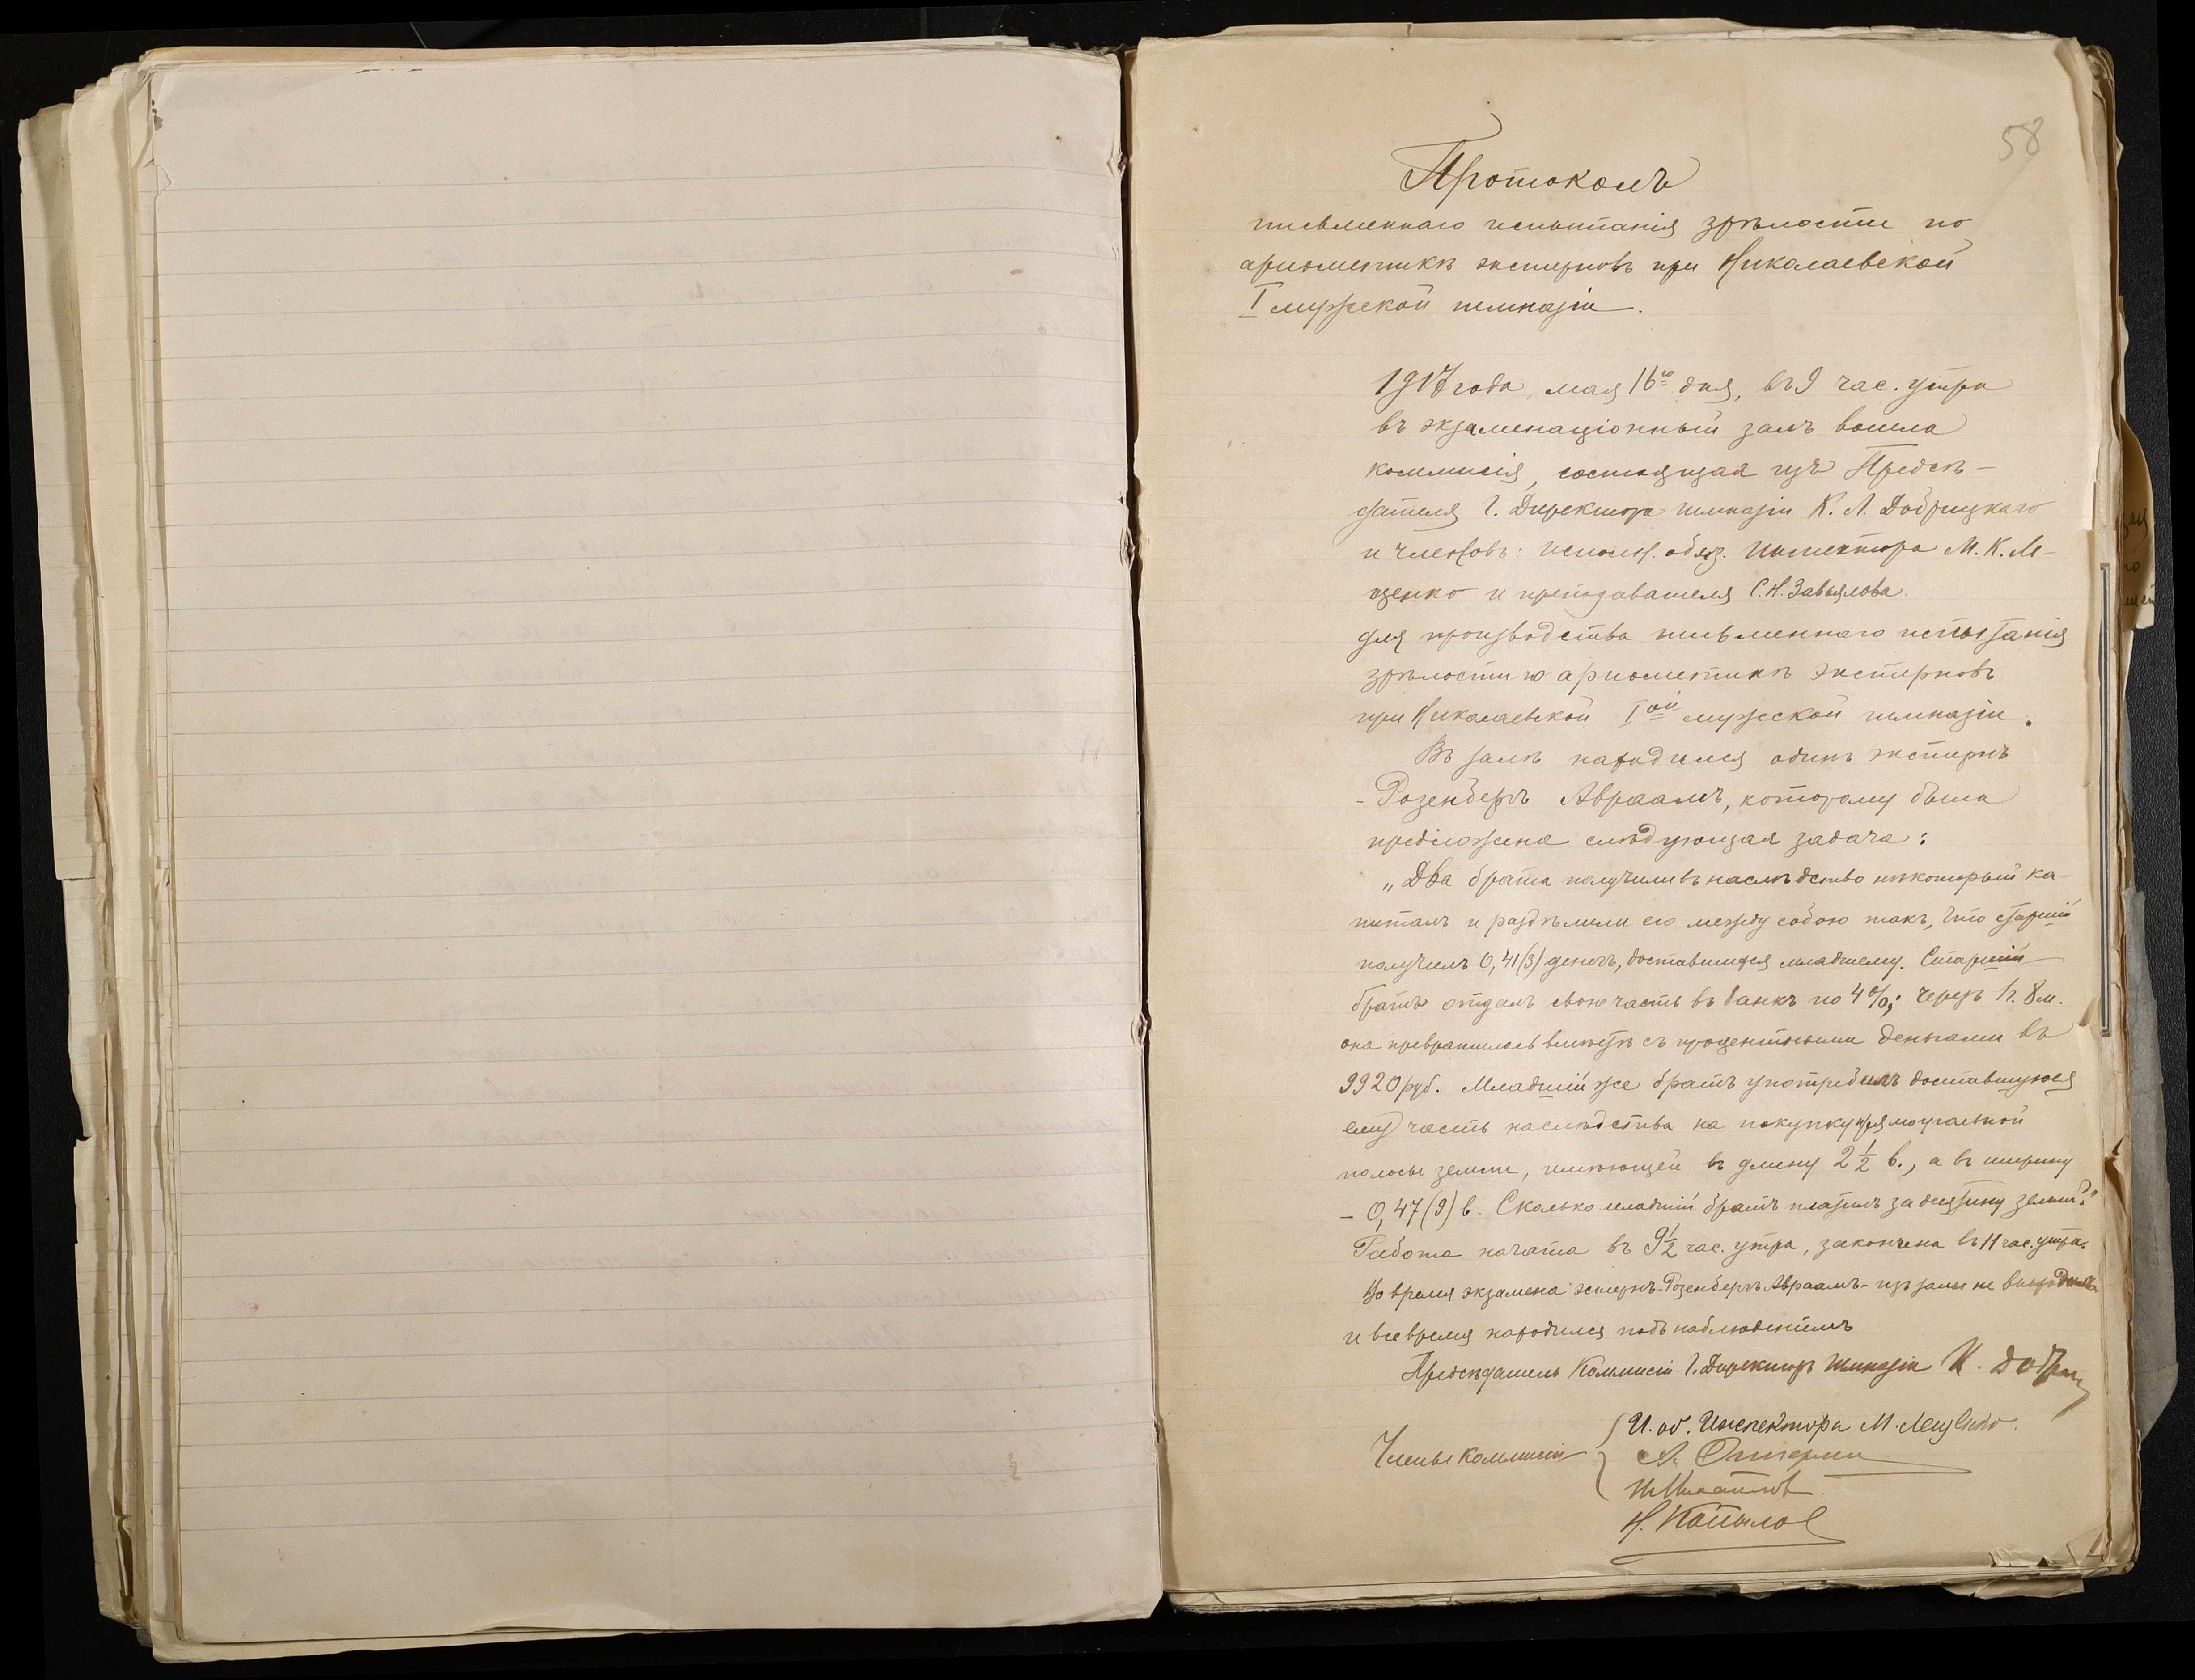 58
Протоколъ
письменнаго испытанія зрѣлости по
ариѳметикѣ экстерновъ при Николаевской
I мужской гимназіи.
1917 года, мая 16го дня, въ 9 час. утра
въ экзаменаціонный залъ вошла
коммисія, состоящая изъ Предсѣ-
дателя Г. Директора гимназіи К. Л. Добрицкаго
и членовъ: исполн. обяз. Инспектора М. К. Ле-
щенко и преподавателя С. Н. Завьялова.
для производства письменнаго испытанія
зрѣлости по ариѳметикѣ экстерновъ
при Николаевской Iой мужской гимназіи.
Въ залѣ находился одинъ экстернъ
- Розенбергъ Авраамъ, которому была
предложена слѣдующая задача:
„Два брата получили въ наслѣдство нѣкоторый ка-
питалъ и раздѣлили его между собою такъ, что старшій
получилъ 0,41(3) денегъ, доставшихся младшему. Старшій
братъ отдалъ свою часть въ банкъ по 4%; черезъ 1 г. 8 м.
она превратилась вмѣстѣ съ процентными деньгами въ
9920 руб. Младшій же братъ употребилъ доставшуюся
ему часть наслѣдства на покупку прямоугольной
полосы земли, имѣющей въ длину 2 1/2 в., а въ ширину
- 0,47(9) в. Сколько младшій братъ платилъ за десятину земли?"
Работа начата въ 9 1/2 час. утра, закончена въ 11 час. утра.
Во время экзамена экстернъ - Розенбергъ Авраамъ - изъ залы не выходилъ
и все время находился подъ наблюденіемъ
Предсѣдатель Коммисіи Г. Директоръ Гимназіи К. Добриц
И. об. Инспектора М. Лещенко.
Члены Коммисіи